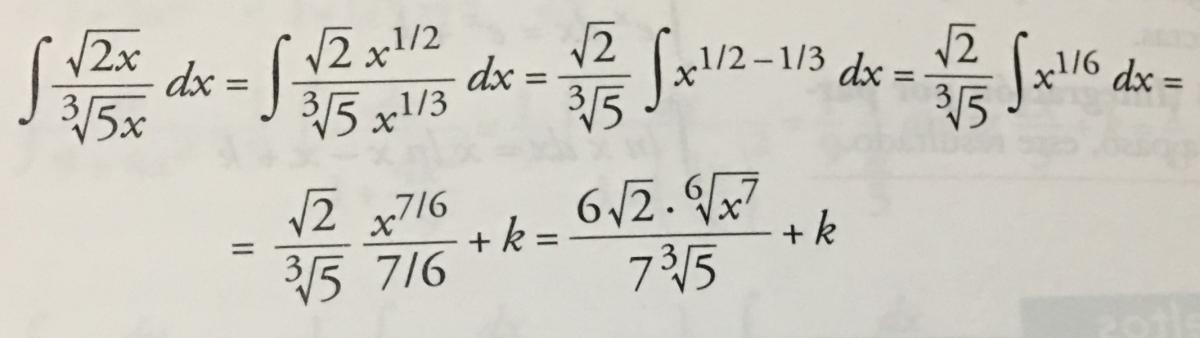 ∫ √(2x)/∛(5x) dx = ∫ (√2 x^(1/2))/(∛5 x^(1/3)) dx = √2/∛5 ∫ x^(1/2 – 1/3) dx = √2/∛5 ∫ x^(1/6) dx =
= √2/∛5 x^(7/6)/(7/6) + k = (6√2 · ⁶√(x⁷))/(7∛5) + k